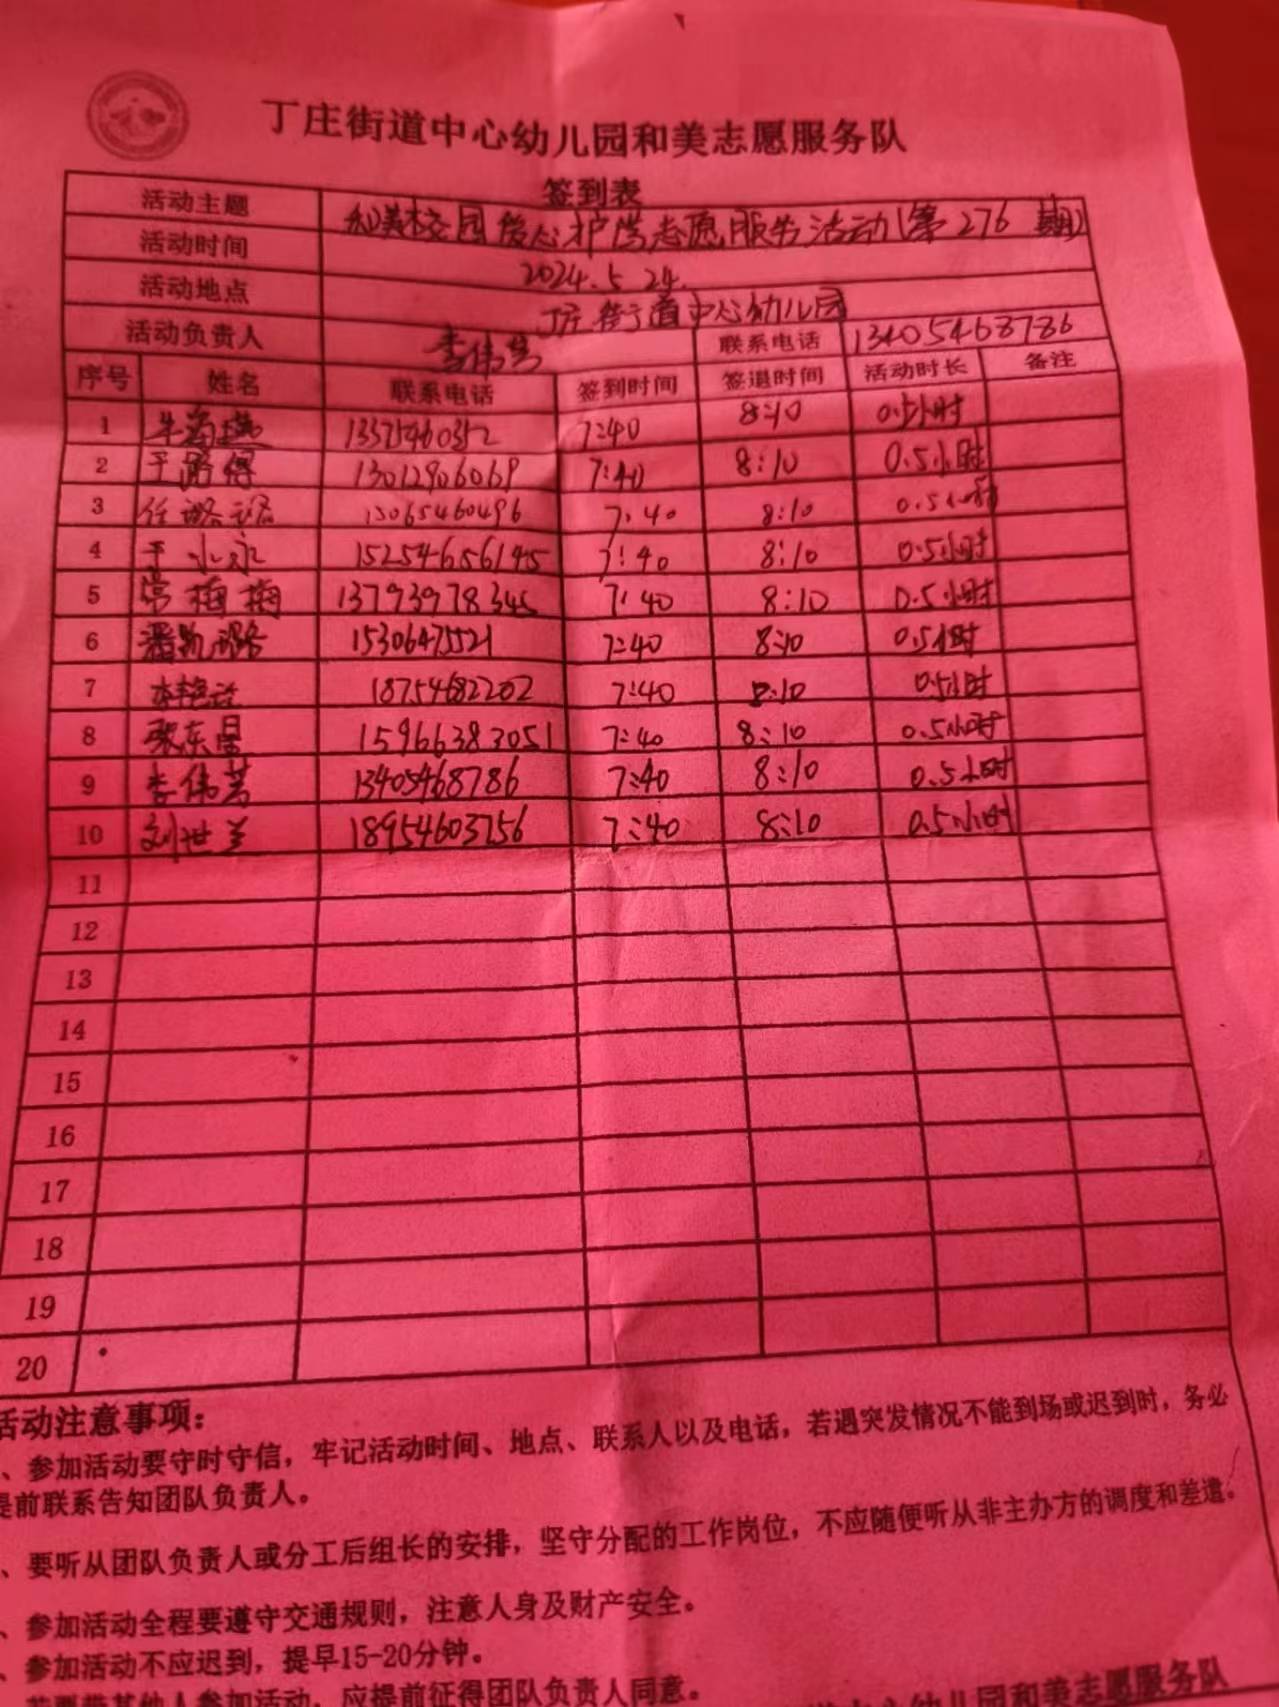 丁庄街道中心幼儿园和美志愿服务队
签到表
活动主题 和美校园爱心护学志愿服务活动(第276期)
活动时间 2024.5.24.
活动地点 丁庄街道中心幼儿园
活动负责人 李伟芳 联系电话 13405468786
序号 姓名 联系电话 签到时间 签退时间 活动时长 备注
1 13375460352 7:40 8:10 0.5小时
2 13012906069 7:40 8:10 0.5小时
3 任璐璐 15065460496 7:40 8:10 0.5小时
4 于水永 15254656145 7:40 8:10 0.5小时
5 常梅梅 13793978345 7:40 8:10 0.5小时
6 15306475521 7:40 8:10 0.5小时
7 18754682202 7:40 8:10 0.5小时
8 张东昌 15966383051 7:40 8:10 0.5小时
9 李伟芳 13405468786 7:40 8:10 0.5小时
10 刘世兰 18954603756 7:40 8:10 0.5小时
11
12
13
14
15
16
17
18
19
20
活动注意事项:
、参加活动要守时守信,牢记活动时间、地点、联系人以及电话,若遇突发情况不能到场或迟到时,务必
提前联系告知团队负责人。
、要听从团队负责人或分工后组长的安排,坚守分配的工作岗位,不应随便听从非主办方的调度和差遣。
、参加活动全程要遵守交通规则,注意人身及财产安全。
、参加活动不应迟到,提早15-20分钟。
若要带其他人参加活动,应提前征得团队负责人同意。
道中心幼儿园和美志愿服务队